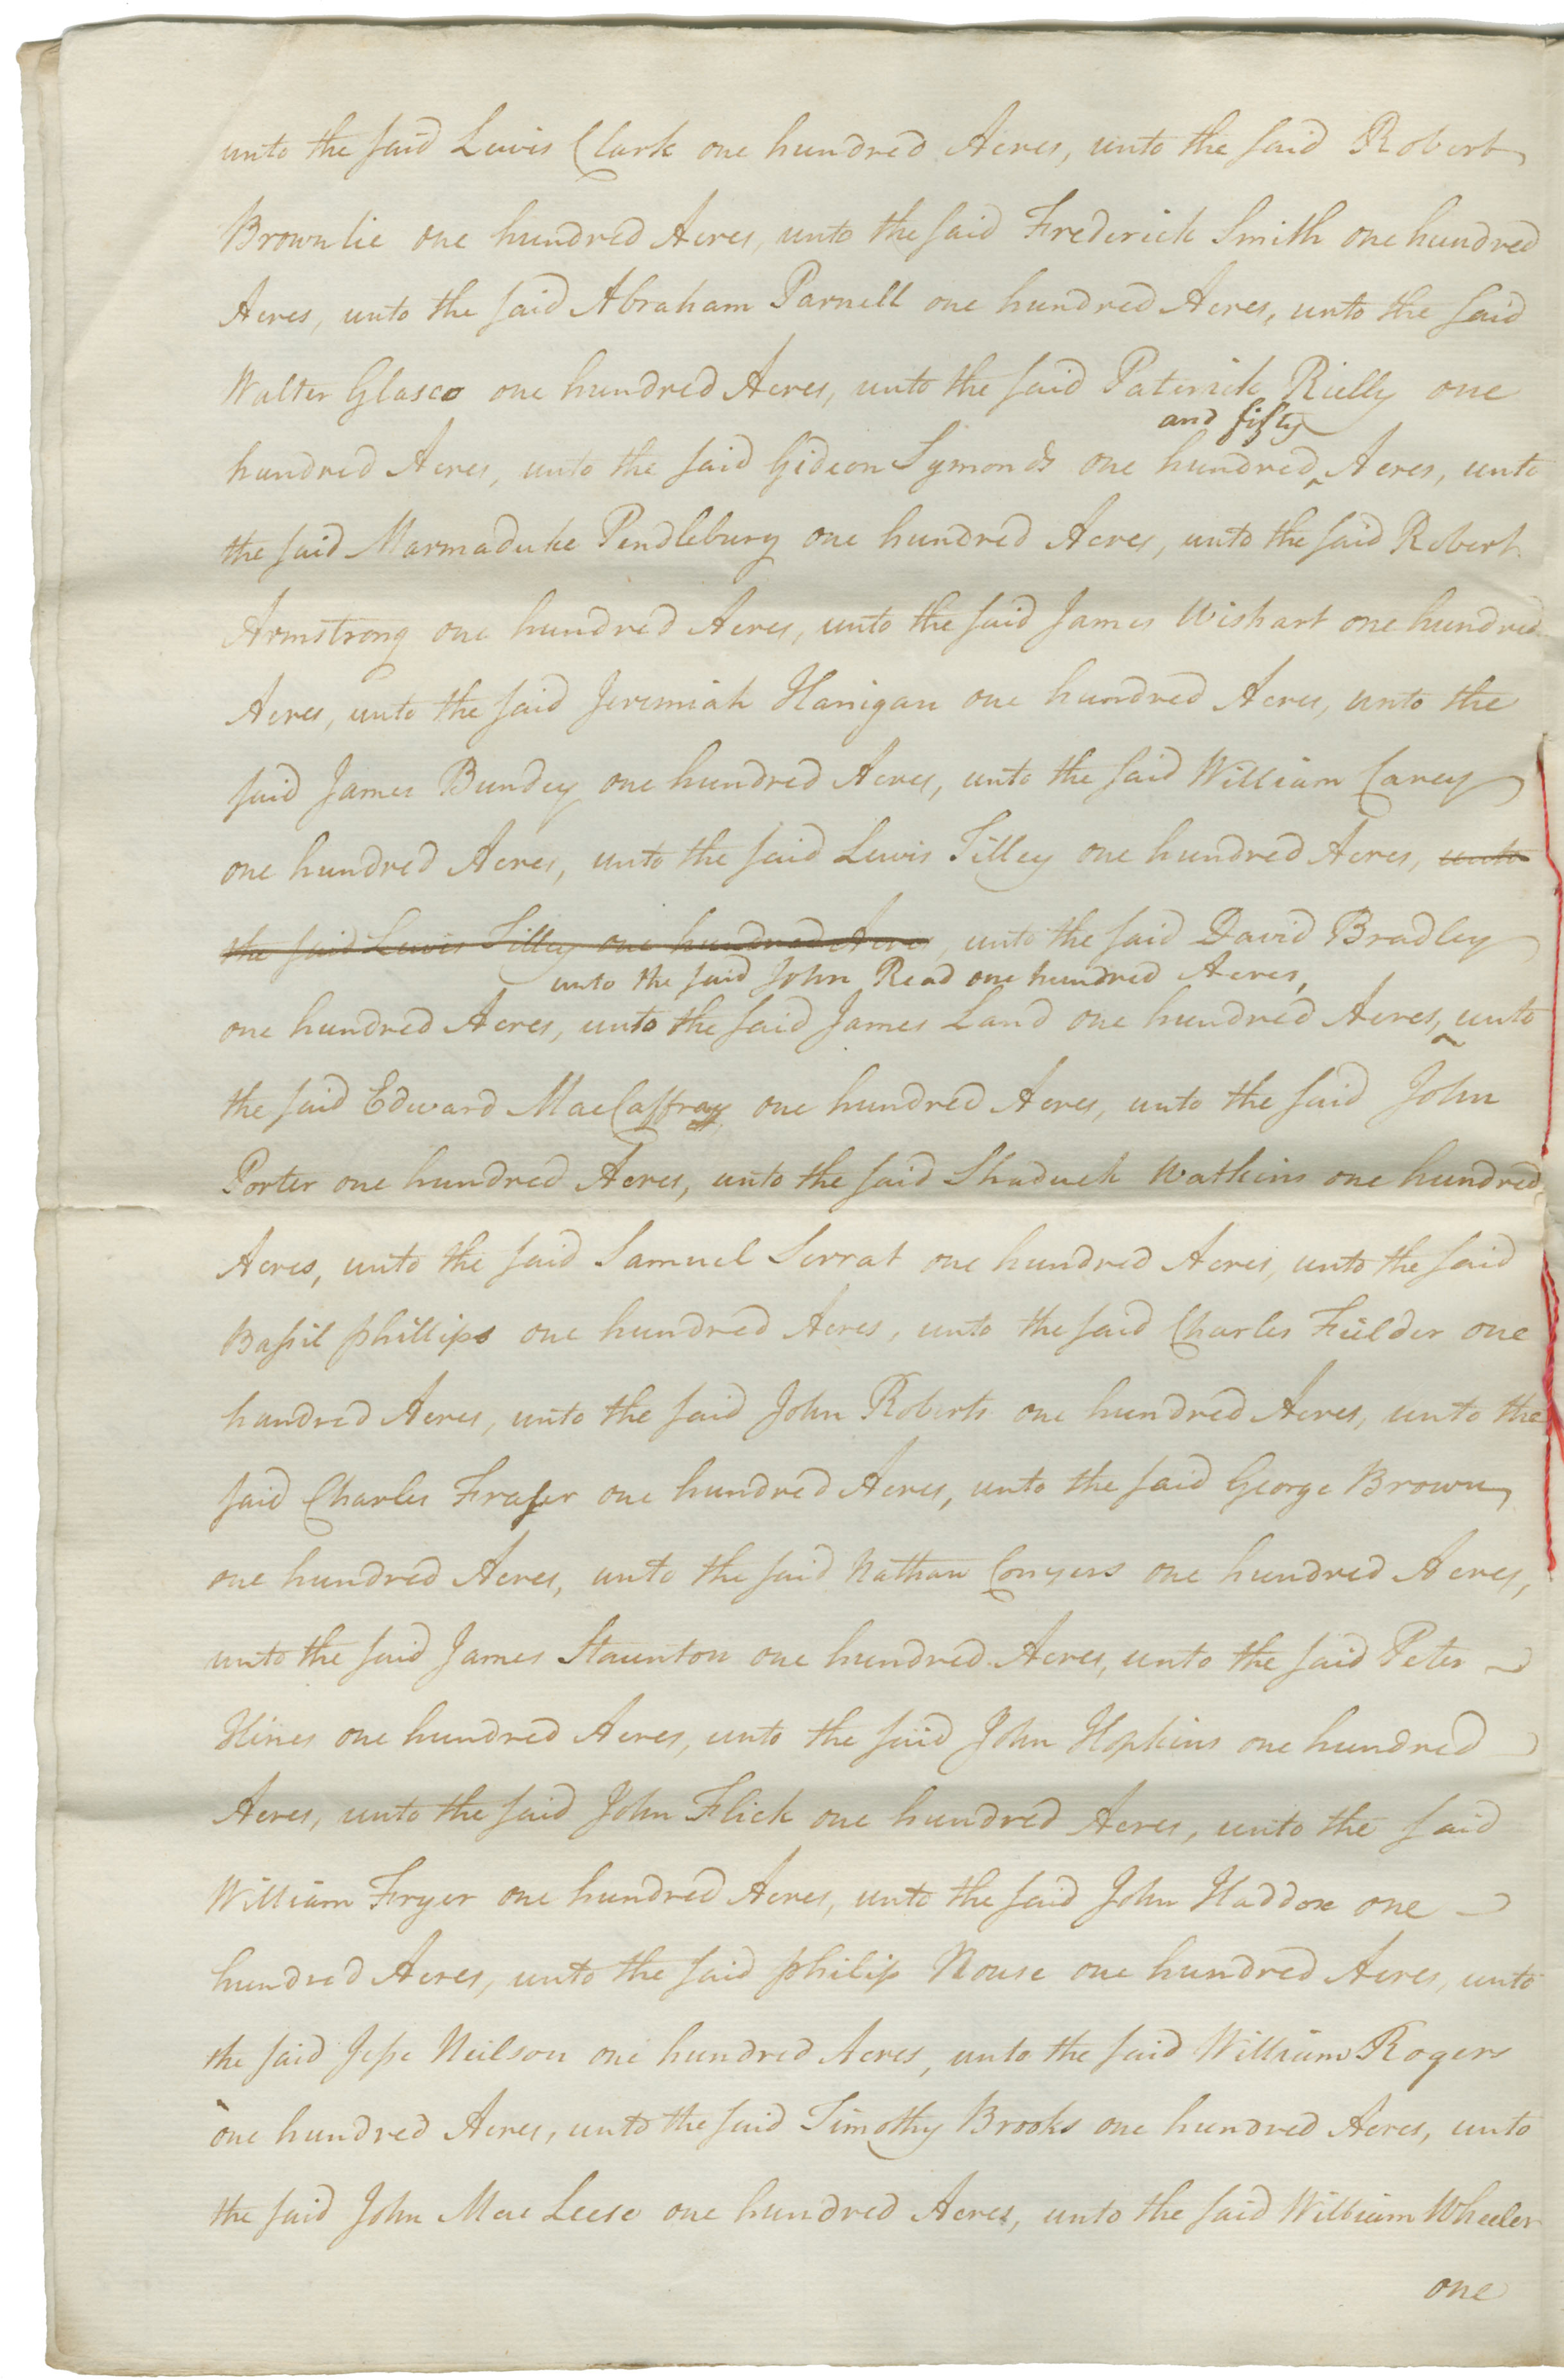 unto the said Lewis Clark one hundred Acres, unto the said Robert
Brownlie one hundred Acres, unto the said Frederick Smith one hundred
Acres, unto the said Abraham Parnell one hundred Acres, unto the said
Walter Glasco one hundred Acres, unto the said Paterick Rielly one
and fifty
hundred Acres, unto the said Gideon Symonds one hundred ^ Acres, unto
the said Marmaduke Pendlebury one hundred Acres, unto the said Robert
Armstrong one hundred Acres, unto the said James Wishart one hundred
Acres, unto the said Jeremiah Hanigan one hundred Acres, unto the
said James Bundey one hundred Acres, unto the said William Carey
one hundred Acres, unto the said Lewis Tilley one hundred Acres, unto
the said Lewis Tilley one hundred Acres, unto the said David Bradley
unto the said John Read one hundred Acres,
one hundred Acres, unto the said James Land one hundred Acres, ^ unto
the said Edward MacCaffray one hundred Acres, unto the said John
Porter one hundred Acres, unto the said Shaduck Watkins one hundred
Acres, unto the said Samuel Serrat one hundred Acres, unto the said
Bassil phillips one hundred Acres, unto the said Charles Fielder one
hundred Acres, unto the said John Roberts one hundred Acres, unto the
said Charles Fraser one hundred Acres, unto the said George Brown
one hundred Acres, unto the said Nathan Conyers one hundred Acres,
unto the said James Staunton one hundred Acres, unto the said Peter
Hines one hundred Acres, unto the said John Hopkins one hundred
Acres, unto the said John Flick one hundred Acres, unto the said
William Fryer one hundred Acres, unto the said John Haddox one
hundred Acres, unto the said philip Nouse one hundred Acres, unto
the said Jesse Neilson one hundred Acres, unto the said William Rogers
one hundred Acres, unto the said Timothy Brooks one hundred Acres, unto
the said John Mac Leese one hundred Acres, unto the said William Wheeler
one